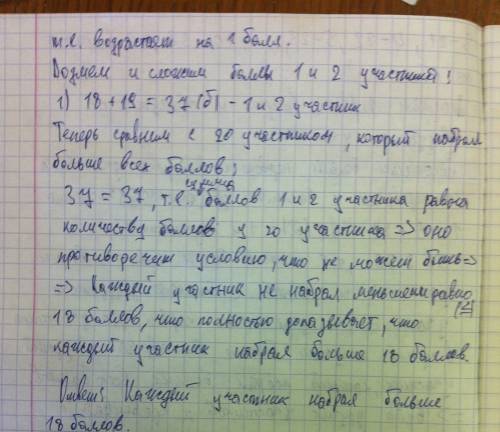 т.е. возрастает на 1 балл.
Возьмем и сложим баллы 1 и 2 участника!
1) 18 + 19 = 37 (б) - 1 и 2 участник
Теперь сравним с 20 участником, который набрал
больше всех баллов:
сумма
37 = 37, т.е. баллов 1 и 2 участника равна
количеству баллов у 20 участника => оно
противоречит условию, что не может быть =>
=> Каждый участник не набрал меньше и равно
(≤)
18 баллов, что полностью доказывает, что
каждый участник набрал больше 18 баллов.
Ответ: Каждый участник набрал больше
18 баллов.